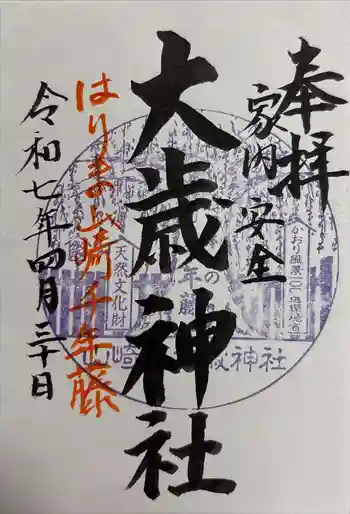 奉拝
家内安全
大歳神社
はりま山崎千年藤
令和七年四月三十日
かおり風景100選環境省
天然文化財